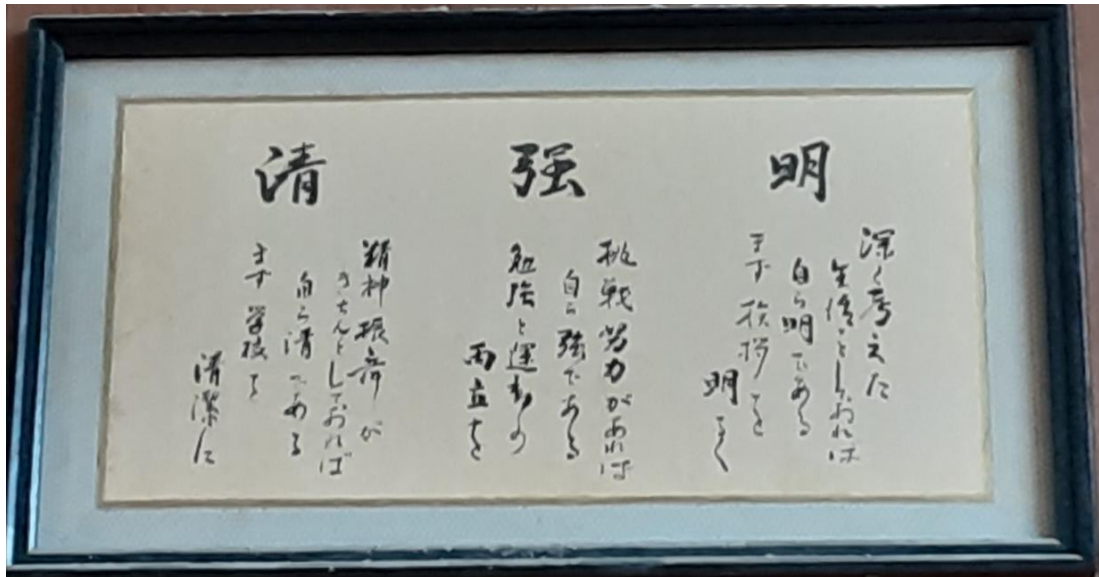 明
深く考えた
しておれば
自ら明である
まず挨拶を
明るく
強
挑戦努力があれば
自ら強である
勉強と運動の
両立を
清
精神が
きちんとしておれば
自ら清である
まず学校を
清潔に